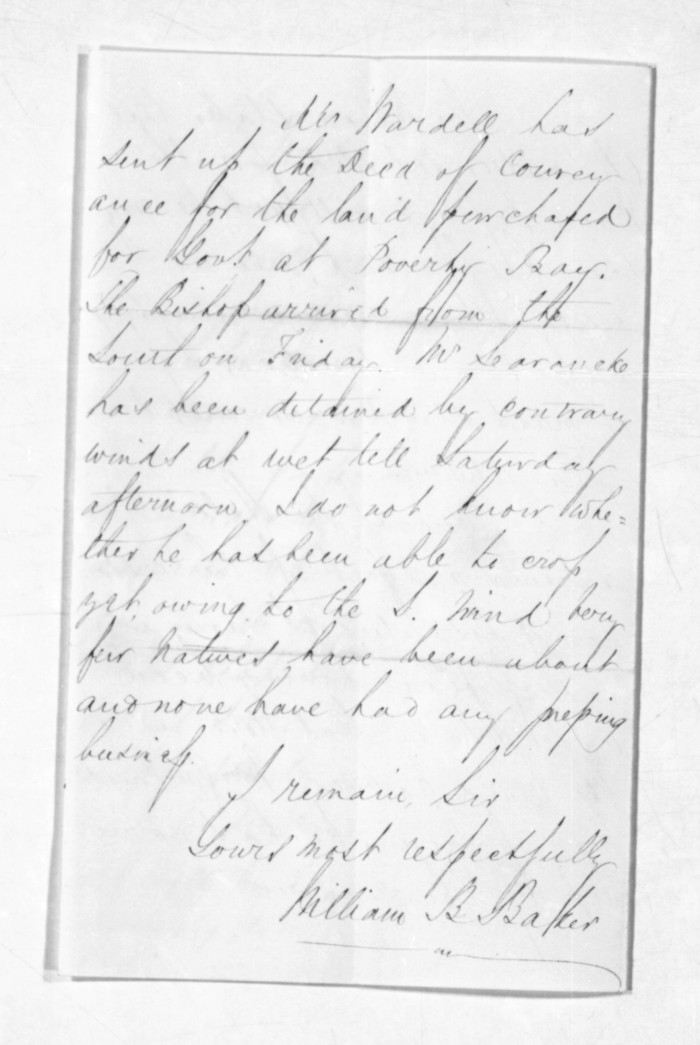 Mr Wardell has
sent up the Deed of Convey
ance for the land purchased
for Govt at Poverty Bay.
The Bishop arrived from the
South on Friday. Mr
has been detained by contrary
winds at till Saturday
afternoon I do not know whe=
ther he has been able to cross
yet, owing to the S. Wind very
few Natives have been about
and none have had any pressing
business.
I remain, Sir
Yours most respectfully
William B Baker